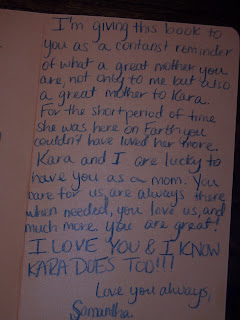 I'm giving this book to
you as a contanst reminder
of what a great mother you
are, not only to me but also
a great mother to Kara.
For the short period of time
she was here on Earth you
couldn't have loved her more.
Kara and I are lucky to
have you as a mom. You
care for us, are always there
when needed, you love us, and
much more. you are great!
I LOVE YOU & I KNOW
KARA DOES TOO!!!
Love you always,
Samantha